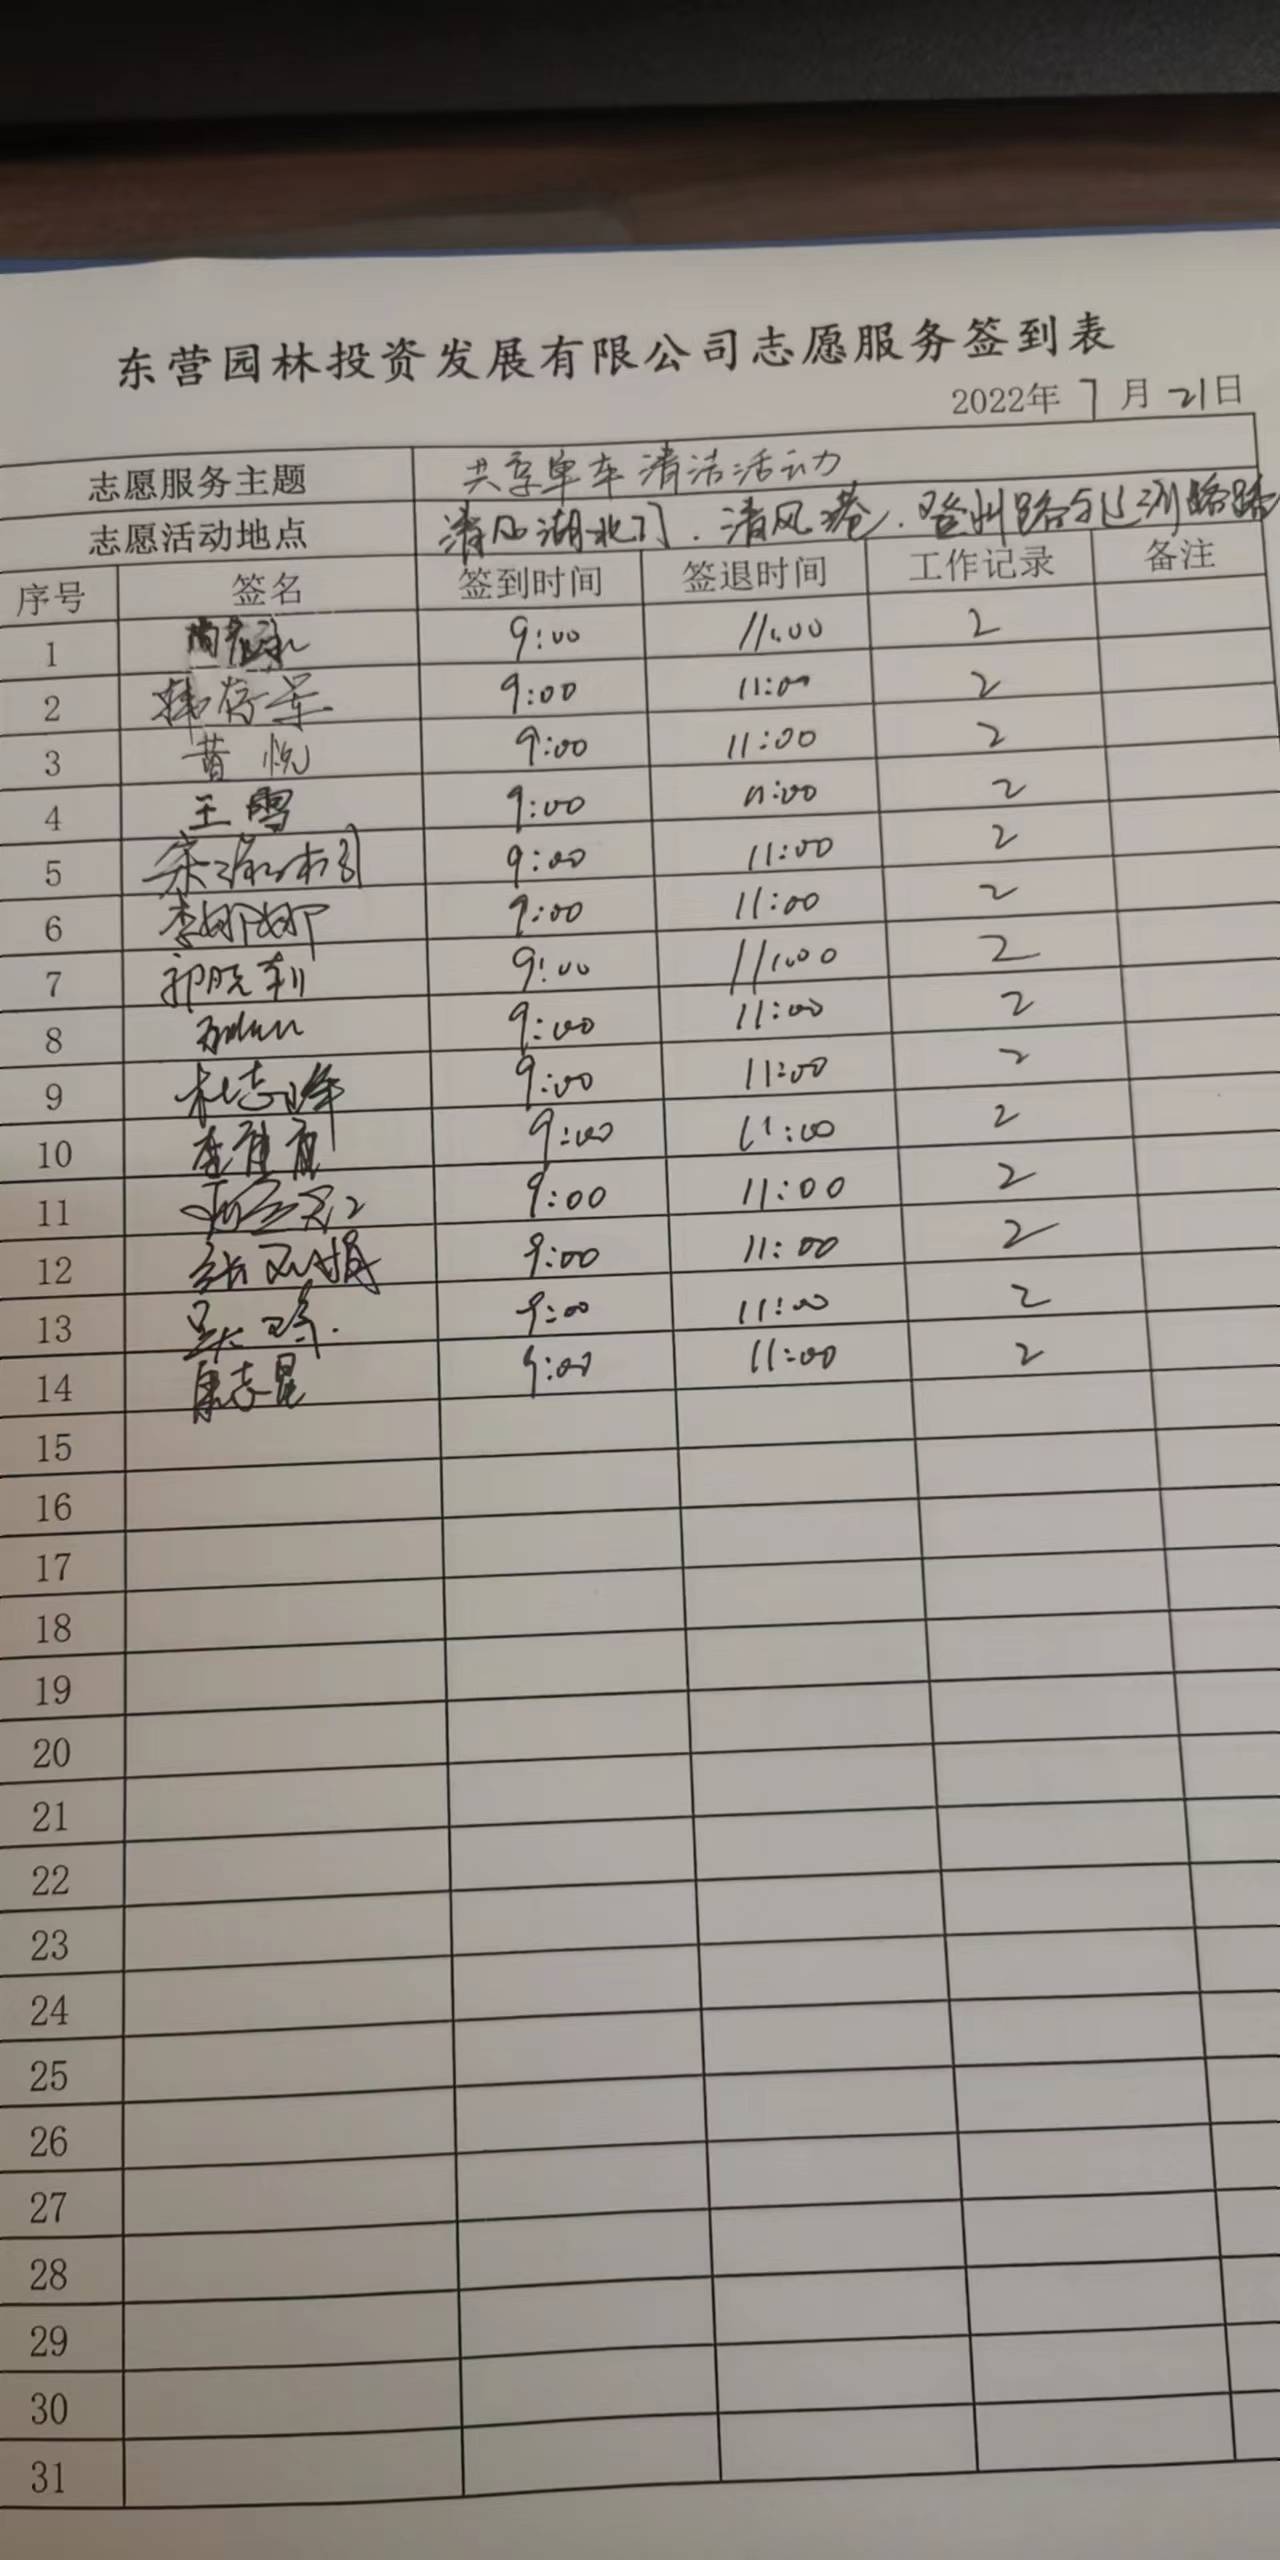 东营园林投资发展有限公司志愿服务签到表
2022年 7 月 21日
志愿服务主题 共享单车清洁活动
志愿活动地点 清风湖北门、清风港、登州路与辽河路路
序号 签名 签到时间 签退时间 工作记录 备注
1 9:00 11:00 2
2 韩存景 9:00 11:00 2
3 黄悦 9:00 11:00 2
4 王雪 9:00 11:00 2
5 9:00 11:00 2
6 李娜娜 9:00 11:00 2
7 郭晓利 9:00 11:00 2
8 9:00 11:00 2
9 杜志峰 9:00 11:00 2
10 9:00 11:00 2
11 9:00 11:00 2
12 9:00 11:00 2
13 9:00 11:00 2
14 康志星 9:00 11:00 2
15
16
17
18
19
20
21
22
23
24
25
26
27
28
29
30
31